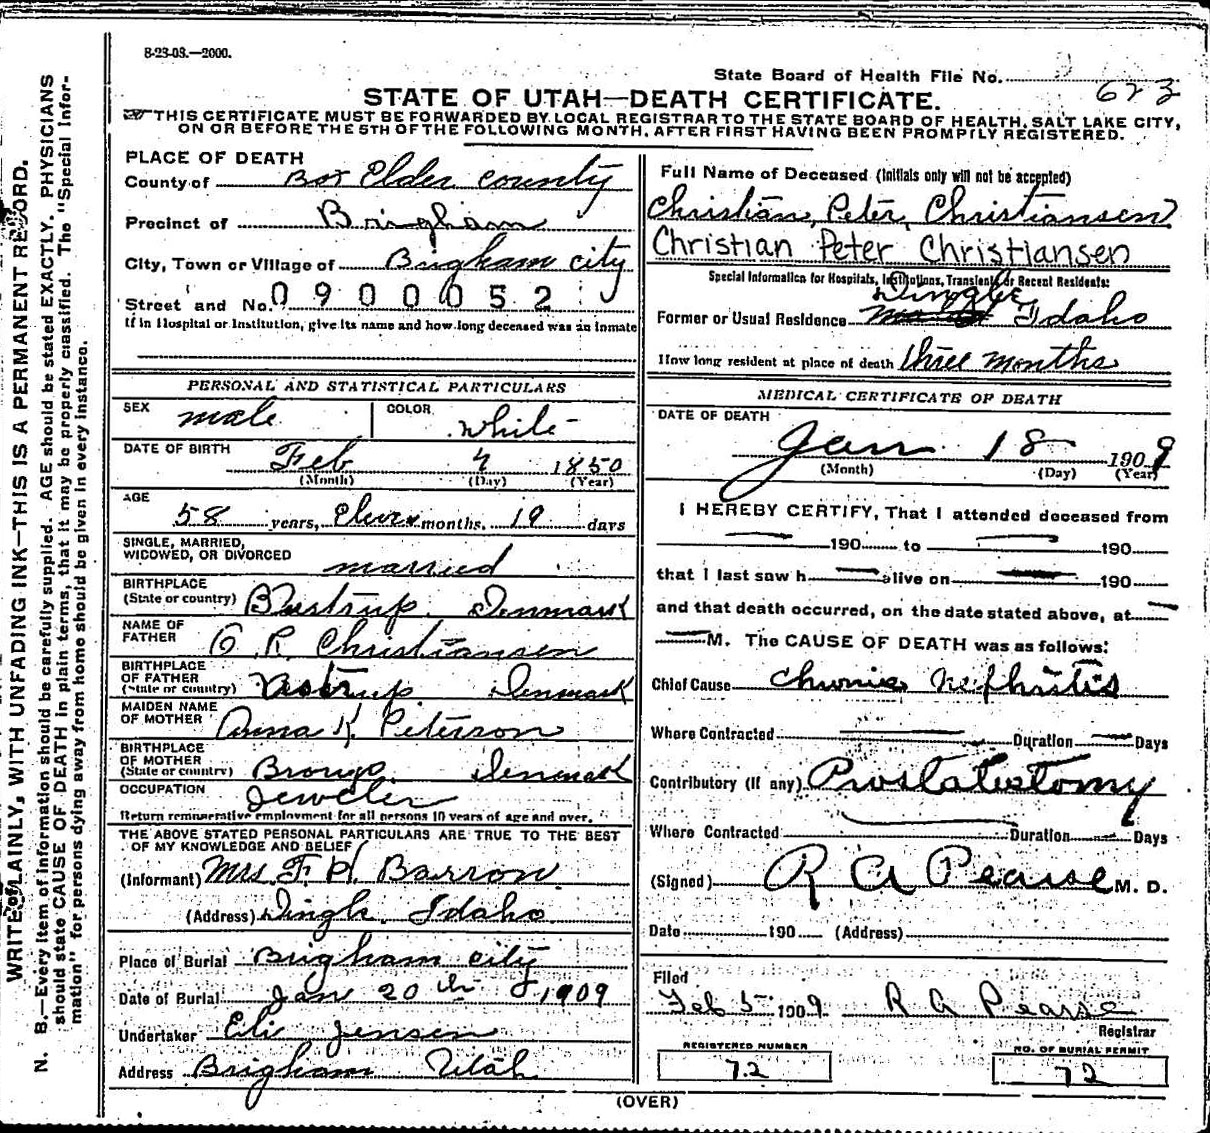 8-23-08.—2000.
State Board of Health File No. 623
STATE OF UTAH—DEATH CERTIFICATE.
THIS CERTIFICATE MUST BE FORWARDED BY LOCAL REGISTRAR TO THE STATE BOARD OF HEALTH, SALT LAKE CITY,
ON OR BEFORE THE 5TH OF THE FOLLOWING MONTH, AFTER FIRST HAVING BEEN PROMPTLY REGISTERED.
PLACE OF DEATH
County of Box Elder county
Precinct of Brigham
City, Town or Village of Brigham city
Street and No. 0900052
If in Hospital or Institution, give its name and how long deceased was an inmate
PERSONAL AND STATISTICAL PARTICULARS
SEX male COLOR white
DATE OF BIRTH Feb 4 1850
(Month) (Day) (Year)
AGE 58 years, Eleven months, 19 days
SINGLE, MARRIED,
WIDOWED, OR DIVORCED married
BIRTHPLACE
(State or country) Denmark
NAME OF
FATHER C. R. Christiansen
BIRTHPLACE
OF FATHER
(State or country) Denmark
MAIDEN NAME
OF MOTHER Anna K. Peterson
BIRTHPLACE
OF MOTHER
(State or country) Denmark
OCCUPATION Jeweler
Return remunerative employment for all persons 10 years of age and over.
THE ABOVE STATED PERSONAL PARTICULARS ARE TRUE TO THE BEST
OF MY KNOWLEDGE AND BELIEF
(Informant) Mrs. F. H. Barron
(Address) Dingle Idaho
Place of Burial Brigham city
Date of Burial Jan 20th 1909
Undertaker Jensen
Address Brigham Utah
Full Name of Deceased (Initials only will not be accepted)
Christian Peter Christiansen
Christian Peter Christiansen
Special Information for Hospitals, Institutions, Transients or Recent Residents:
Dingle
Former or Usual Residence Idaho
How long resident at place of death three months
MEDICAL CERTIFICATE OF DEATH
DATE OF DEATH
Jan 18 1909
(Month) (Day) (Year)
I HEREBY CERTIFY, That I attended deceased from
190 to 190
that I last saw h alive on 190
and that death occurred, on the date stated above, at
M. The CAUSE OF DEATH was as follows:
Chief Cause chronic nephritis
Where Contracted Duration Days
Contributory (if any) Prostatectomy
Where Contracted Duration Days
(Signed) R A Pearse M. D.
Date 190 (Address)
Filed
Feb 5 1909 R A Pearse
Registrar
REGISTERED NUMBER
72
NO. OF BURIAL PERMIT
72
(OVER)
WRITE PLAINLY, WITH UNFADING INK—THIS IS A PERMANENT RECORD.
N. B.—Every item of information should be carefully supplied. AGE should be stated EXACTLY. PHYSICIANS
should state CAUSE OF DEATH in plain terms, that it may be properly classified. The "Special Infor-
mation" for persons dying away from home should be given in every instance.